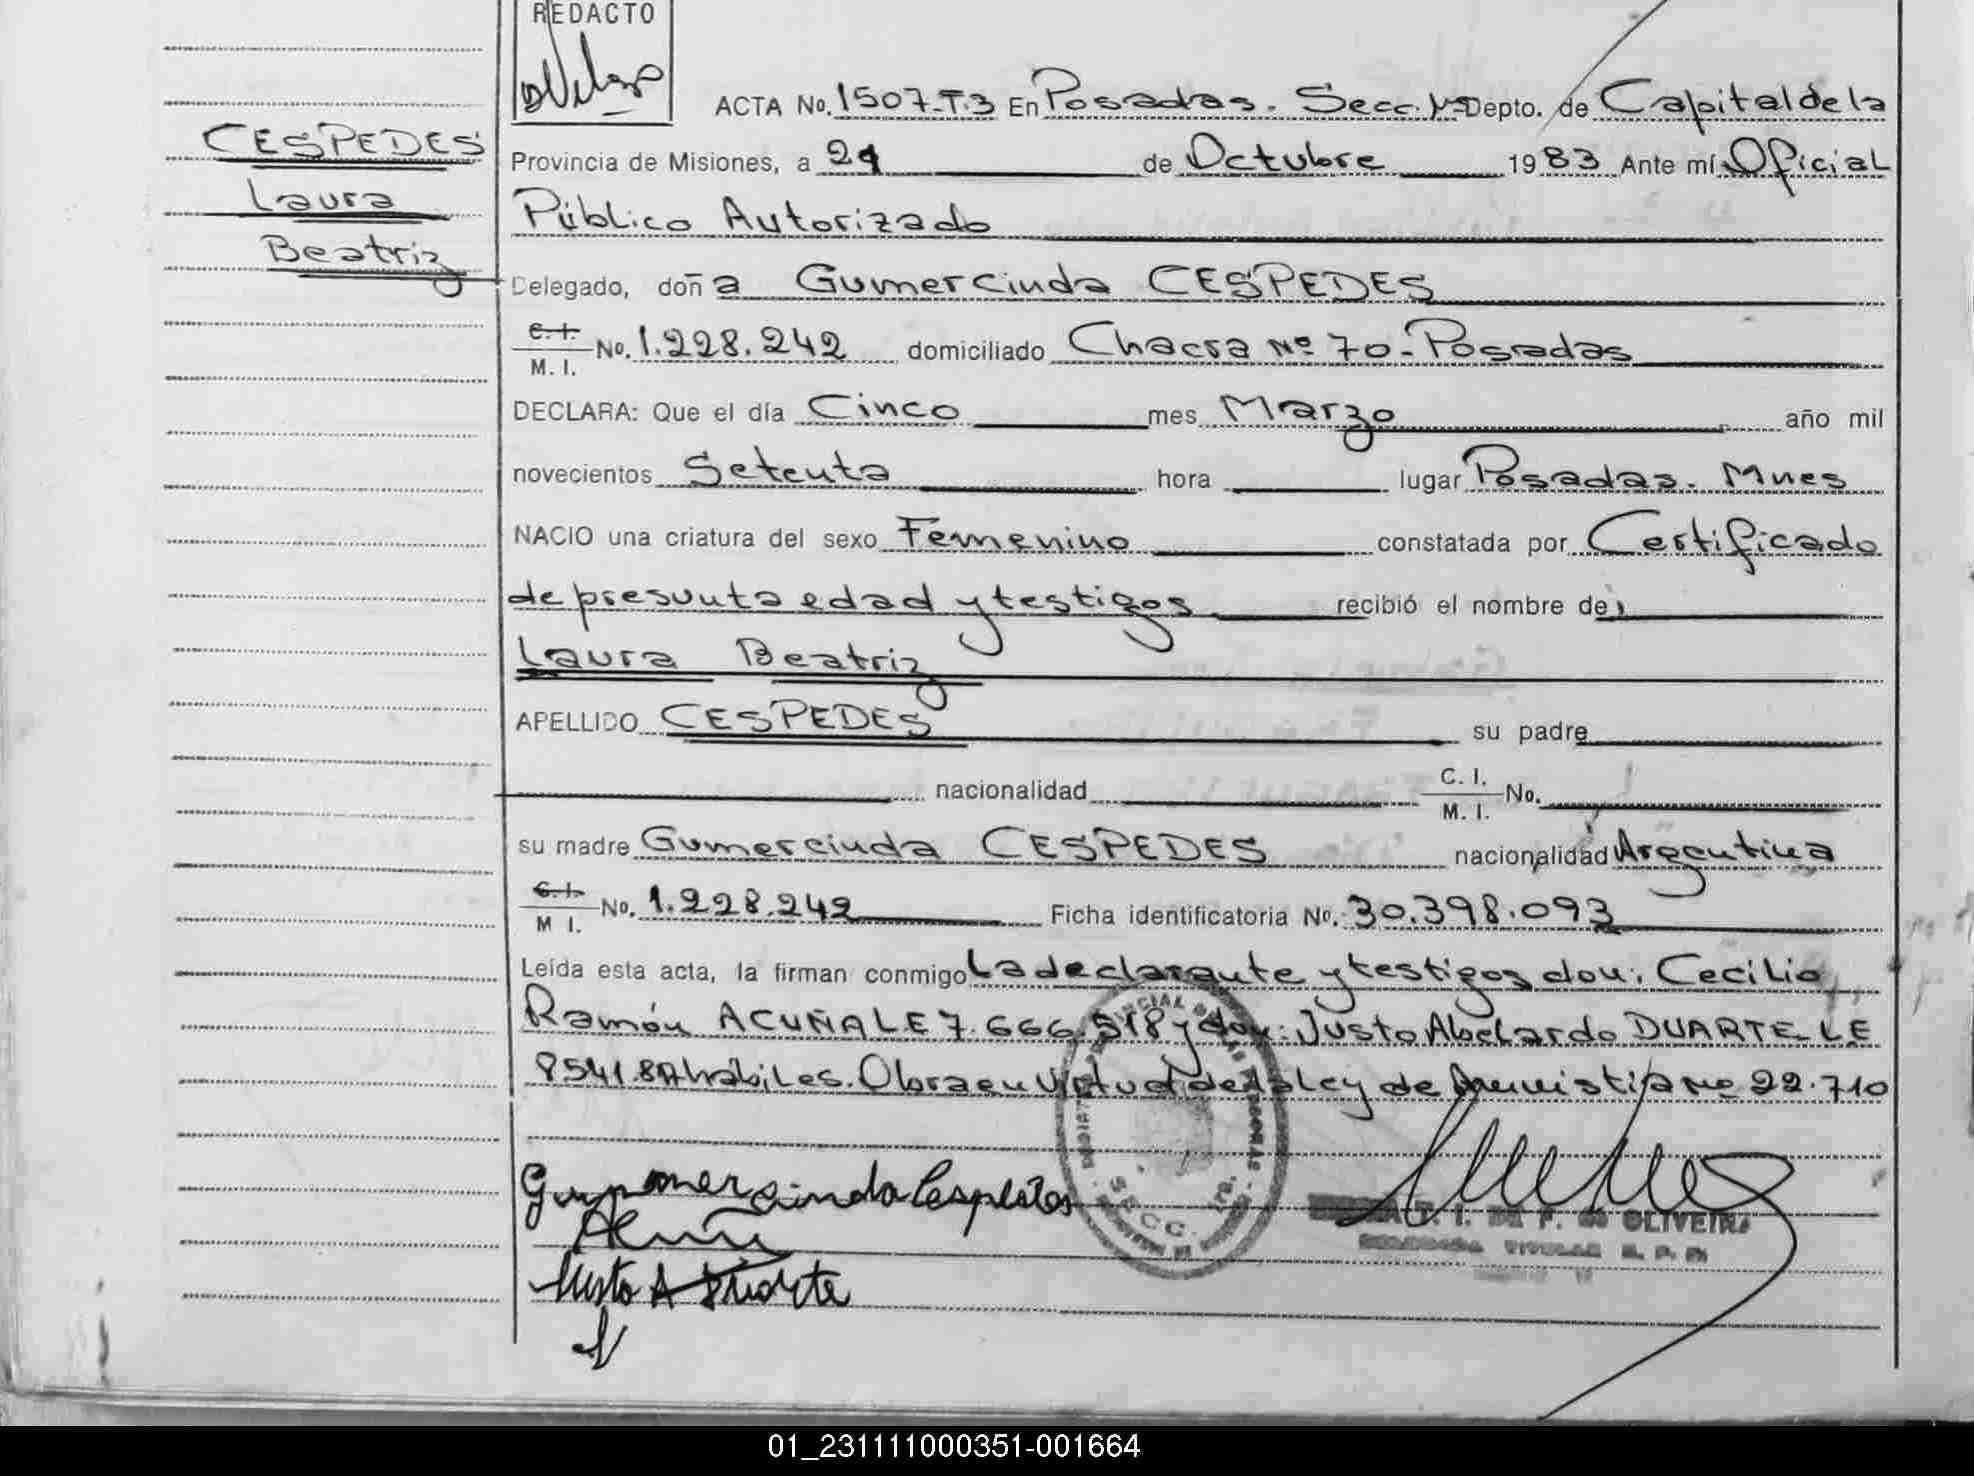 REDACTO
ACTA No. 1507-T.3 En Posadas. Secc. Depto. de Capital de la
CESPEDES
Laura
Beatriz
Provincia de Misiones, a 24 de Octubre 1983 Ante mí Oficial
Público Autorizado
Delegado, doña Gumercinda CESPEDES
C. I.
M. I. No. 1.228.242 domiciliado Chacra Nº 70-Posadas
DECLARA: Que el día Cinco mes Marzo año mil
novecientos Setenta hora lugar Posadas. Mnes
NACIO una criatura del sexo Femenino constatada por Certificado
de presunta edad y testigos recibió el nombre de
Laura Beatriz
APELLIDO CESPEDES su padre
nacionalidad C. I.
M. I. No.
su madre Gumercinda CESPEDES nacionalidad Argentina
C. I.
M I. No. 1.228.242 Ficha identificatoria No. 30.398.093
Leída esta acta, la firman conmigo La declarante y testigos don: Cecilio
Ramón ACUÑA LE 7.666.518 y don: Justo Abelardo DUARTE LE
habiles. Obra en Virtud de la ley de Amnistia Nº 22.710
Gumercinda Cespedes
Justo A Duarte
SECC. 1ra.
T. I. DE F. de OLIVEIRA
TITULAR
01_231111000351-001664